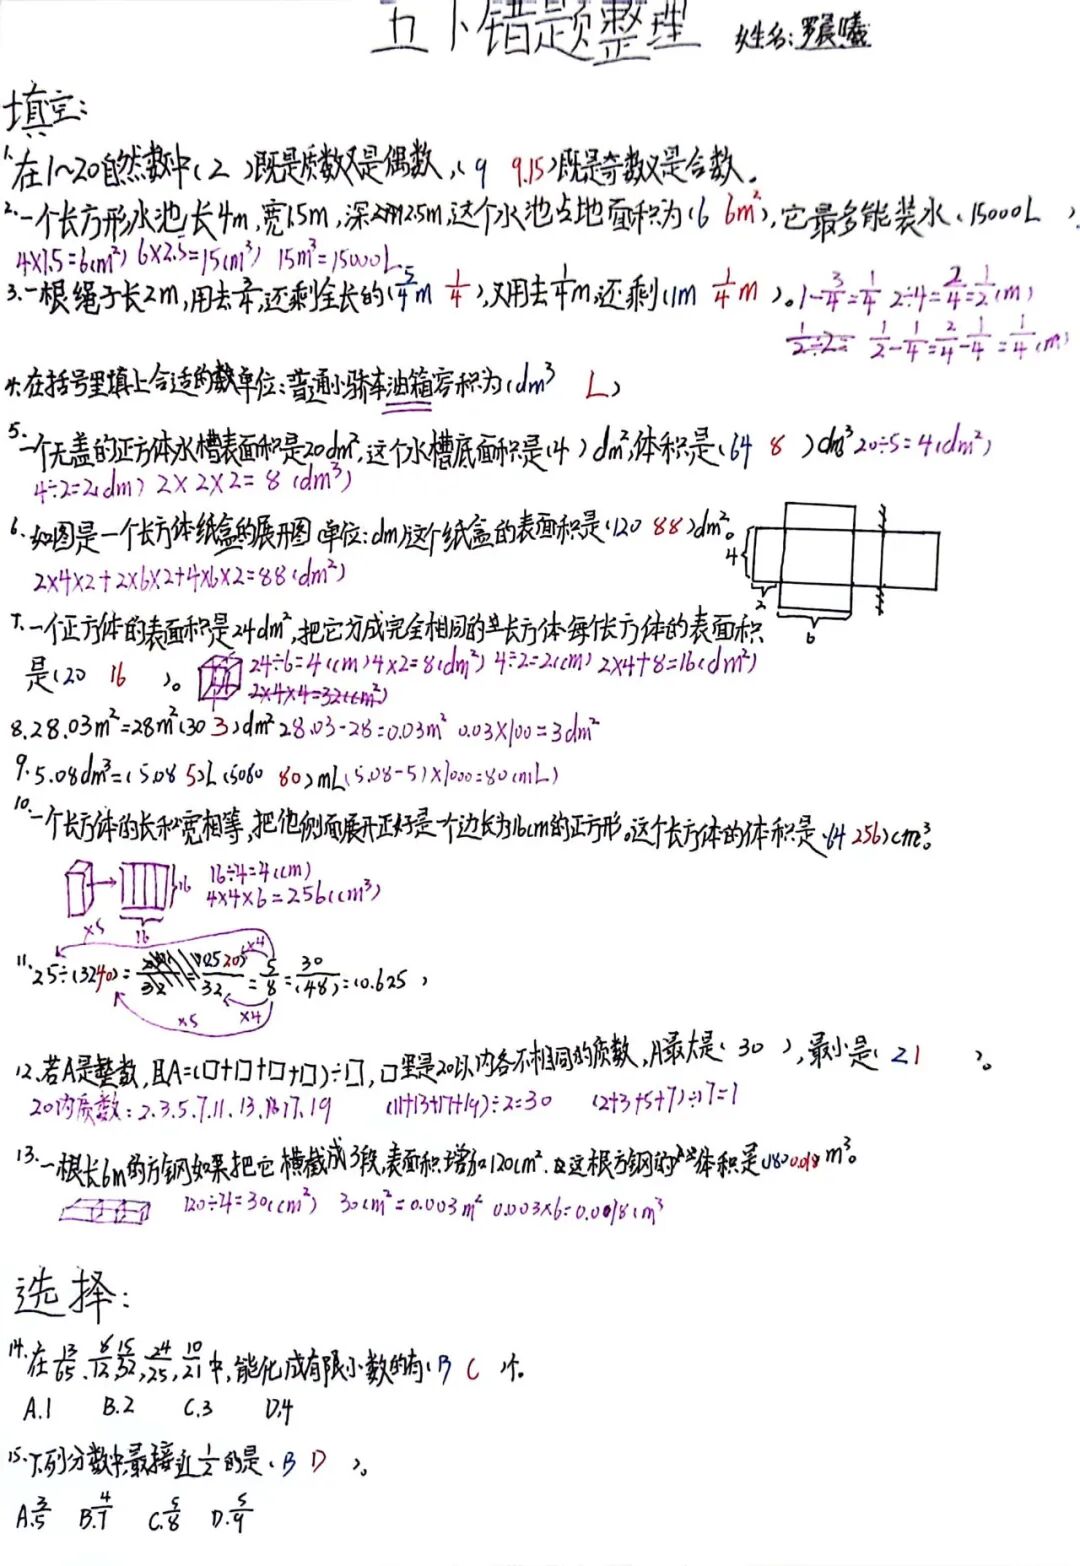 五下错题整理 姓名:罗晨曦
填空:
1.在1~20自然数中(2)既是质数又是偶数,(9 9.15)既是奇数又是合数。
2.一个长方形水池,长4m,宽1.5m,深2.5m,这个水池占地面积为(6 6m²),它最多能装水(15000L)
4×1.5=6(m²) 6×2.5=15(m³) 15m³=15000L
3.一根绳子长2m,用去3/4,还剩全长的(5/4m 1/4),又用去1/4m,还剩(1m 1/4m)。1-3/4=1/4 2÷4=2/4=1/2(m)
1/2÷2= 1/2-1/4=2/4-1/4=1/4(m)
4.在括号里填上合适的单位:普通小轿车油箱容积为(dm³ L)
5.一个无盖的正方体水槽表面积是20dm²,这个水槽底面积是(4)dm²,体积是(64 8)dm³ 20÷5=4(dm²)
4÷2=2(dm) 2×2×2=8(dm³)
6.如图是一个长方体纸盒的展开图(单位:dm)这个纸盒的表面积是(120 88)dm²。
4
2×4×2+2×6×2+4×6×2=88(dm²)
2
6
7.一个正方体的表面积是24dm²,把它分成完全相同的长方体每个长方体的表面积
是(20 16)。 24÷6=4(cm) 4×2=8(dm²) 4÷2=2(cm) 2×4+8=16(dm²)
2×4×4=32(cm²)
8.28.03m²=28m²(30 3)dm² 28.03-28=0.03m² 0.03×100=3dm²
9.5.08dm³=(5.08 5)L(5080 80)mL(5.08-5)×1000=80(mL)
10.一个长方体的长和宽相等,把他侧面展开正好是一个边长为16cm的正方形。这个长方体的体积是(64 256)cm³。
16÷4=4(cm)
16
4×4×6=256(cm³)
16
×5 ×4
11.25÷(32 40)=(25 20)/32=5/8=30/(48)=(0.625)
×5 ×4
12.若A是整数,且A=(□+□+□+□)÷□,□里是20以内各不相同的质数,A最大是(30),最小是(2 1)。
20内质数:2.3.5.7.11.13.17.19 (11+13+17+19)÷2=30 (2+3+5+7)÷17=1
13.一根长6m的方钢如果把它横截成3段,表面积增加120cm².这根方钢的体积是(180 0.018)m³。
120÷4=30(cm²) 30cm²=0.003m² 0.003×6=0.0018(m³
选择:
14.在13/65、6/12,15/32,24/25,10/21中,能化成有限小数的有(B C)个。
A.1 B.2 C.3 D.4
15.下列分数中,最接近1/2的是(B D)。
A.3/5 B.4/7 C.5/8 D.5/9